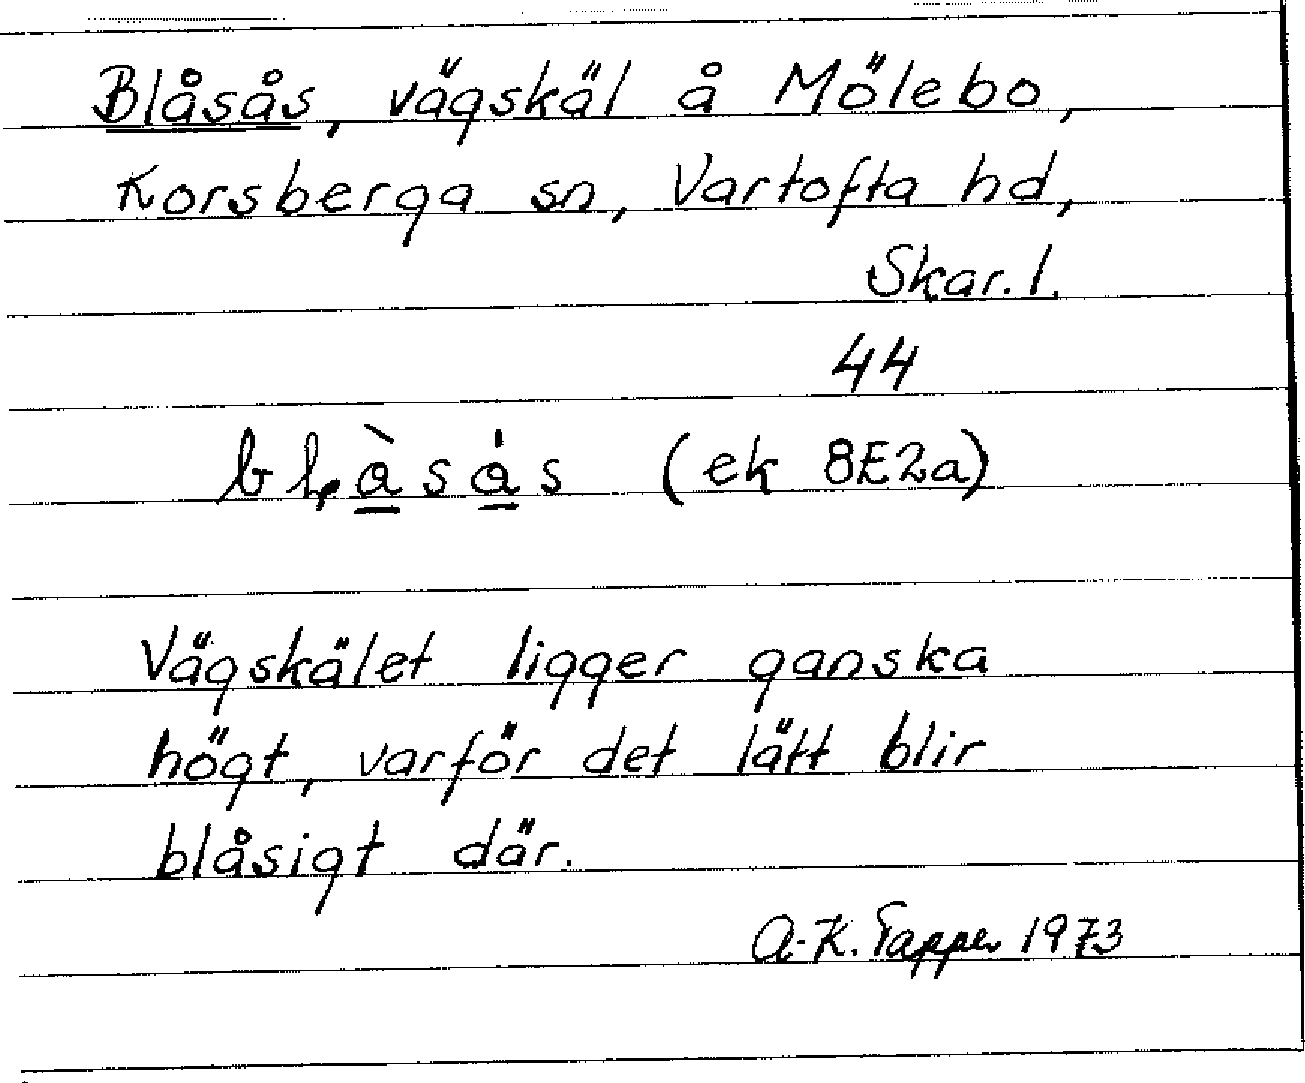 Blåsås, vägskäl å Mölebo,
Korsberga sn, Vartofta hd,
Skar. l.
44
bl̨à̱sa̱̍s (ek 8E2a)
Vägskälet ligger ganska
högt, varför det lätt blir
blåsigt där.
A-K. Tapper 1973